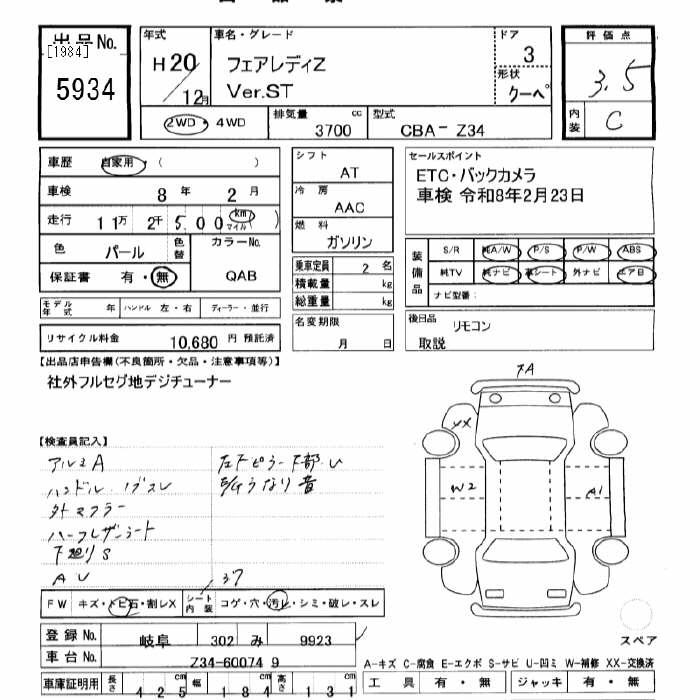 出品No.
[1984]
5934
年式
H20
12月
車名・グレード
フェアレディZ
Ver.ST
ドア
3
形状
クーペ
評価点
3.5
内装
C
2WD・4WD
排気量 cc
3700
型式
CBA- Z34
車歴 自家用・( )
車検 8年 2月
走行 11万 2千 5,00 km マイル )
色 パール 色替
カラーNo.
QAB
保証書 有・無
モデル年式 年 ハンドル 左・右 ディーラー・並行
リサイクル料金 10,680 円 預託済
シフト
AT
冷房
AAC
燃料
ガソリン
乗車定員 2 名
積載量 kg
総重量 kg
名変期限
月 日
セールスポイント
ETC・バックカメラ
車検 令和8年2月23日
装備品
S/R 純A/W P/S P/W ABS
純TV 純ナビ 革シート 外ナビ エアB
ナビ型番:
後日品
リモコン
取説
【出品店申告欄(不良箇所・欠品・注意事項等)】
社外フルセグ地デジチューナー
【検査員記入】
アルミA
ハンドル
外マフラー
ハーフレザーシート
下廻りS
AU
左下ピラー下部U
うなり音
37
FW キズ・トビ石・割レX
シート内装 コゲ・穴・汚レ・シミ・破レ・スレ
登録No. 岐阜 302 み 9923
車台No. Z34-60074 9
車庫証明用 長さ 425 cm 幅 184 cm 高さ 131 cm
XX
W2
A1
スペア
A-キズ C-腐食 E-エクボ S-サビ U-凹ミ W-補修 XX-交換済
工具 有・無 ジャッキ 有・無